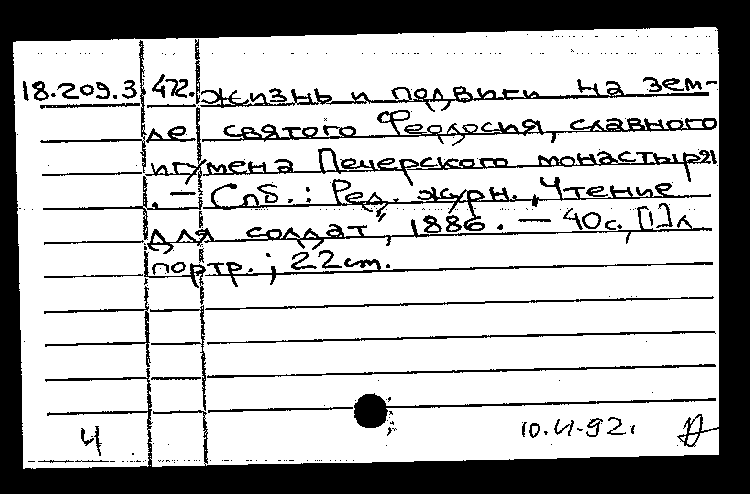 18.209.3.472. Жизнь и подвиги на зем-
ле святого Феодосия, славного
игумена Печерского монастыря
. — Спб.: Ред. журн. „Чтение
для солдат", 1886. — 40с., [1]л
портр.; 22 cm.
Ч 10.VI-92.